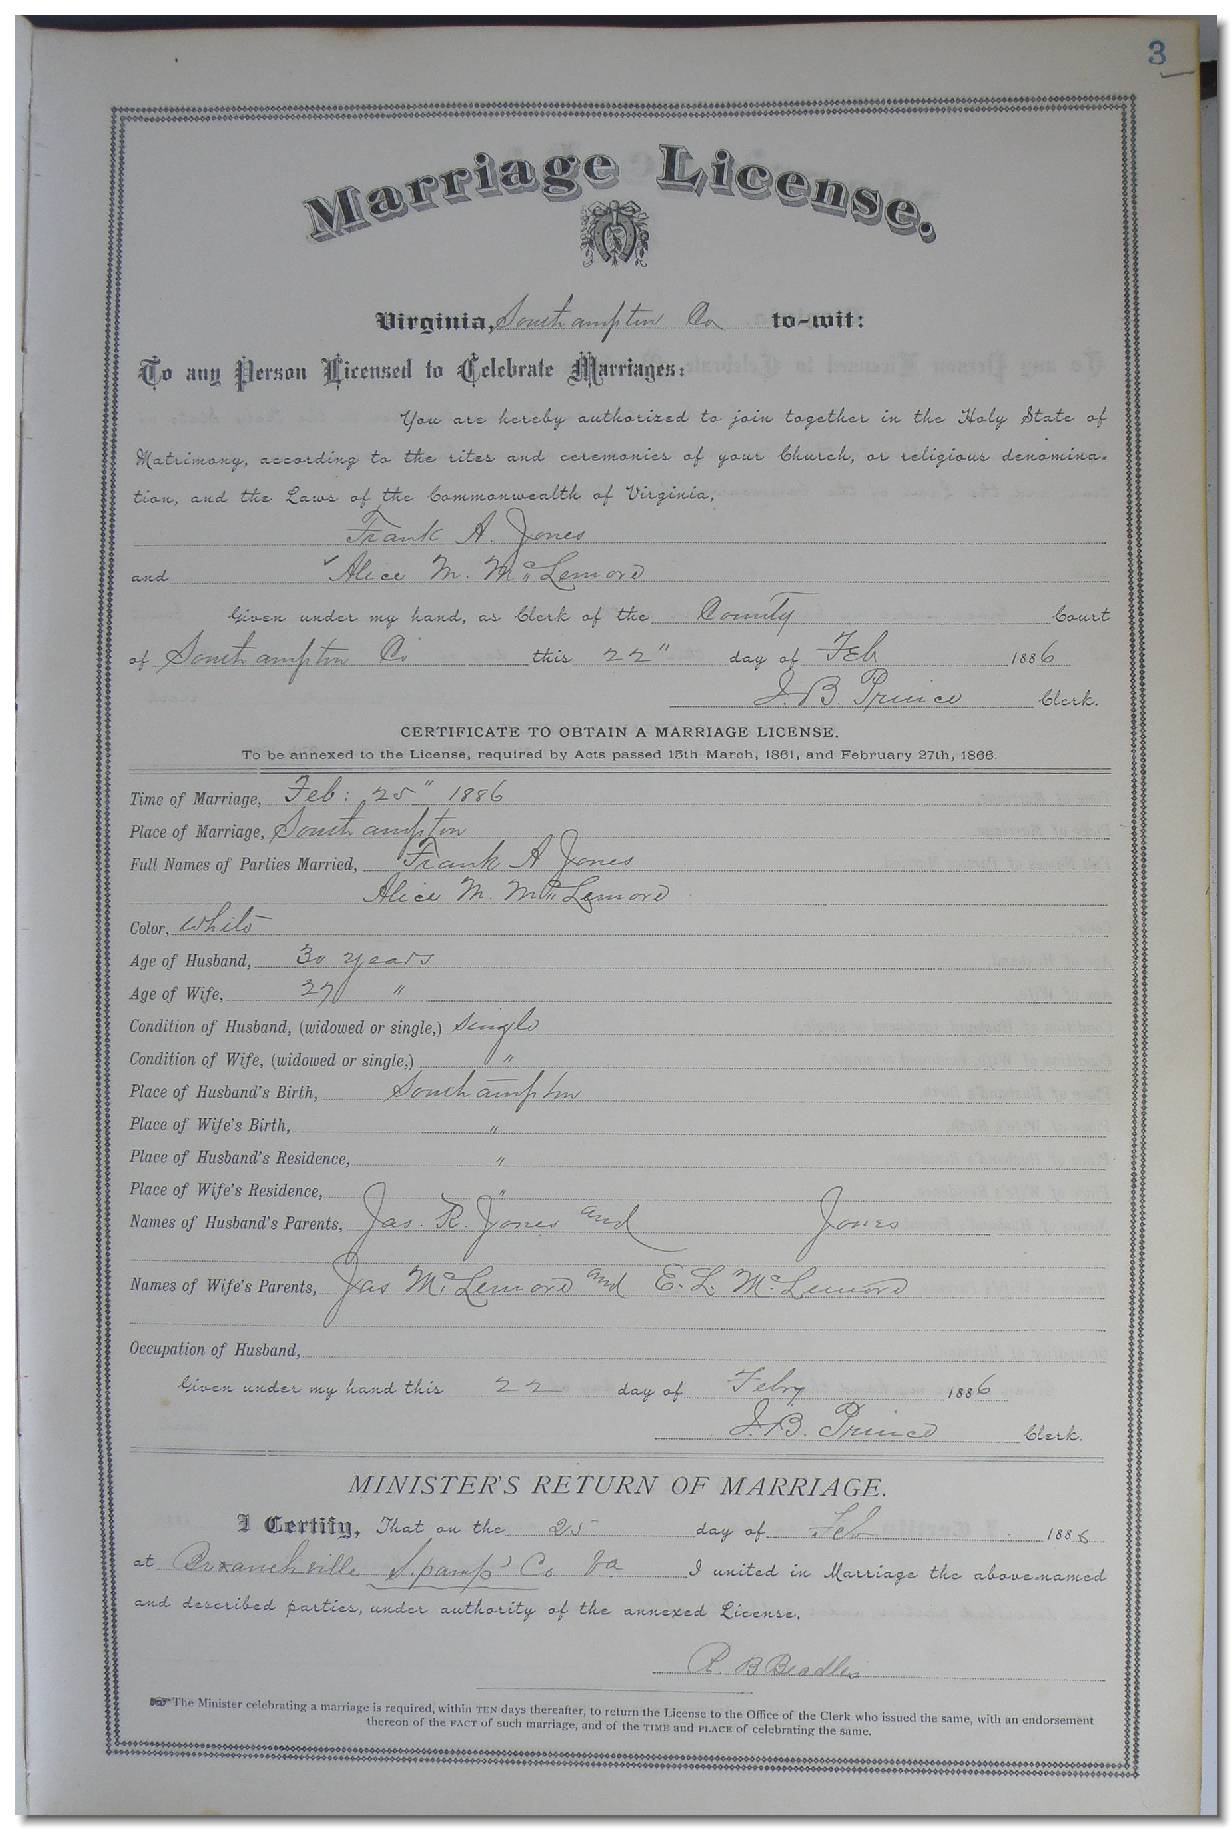 3
Marriage License.
Virginia, Southampton Co to-wit:
To any Person Licensed to Celebrate Marriages:
You are hereby authorized to join together in the Holy State of
Matrimony, according to the rites and ceremonies of your Church, or religious denomina-
tion, and the Laws of the Commonwealth of Virginia,
Frank A. Jones
and Alice M. McLemore
Given under my hand, as Clerk of the County Court
of Southampton Co this 22" day of Feb 1886
J. B. Prince Clerk.
CERTIFICATE TO OBTAIN A MARRIAGE LICENSE.
To be annexed to the License, required by Acts passed 15th March, 1861, and February 27th, 1866.
Time of Marriage, Feb: 25" 1886
Place of Marriage, Southampton
Full Names of Parties Married, Frank A Jones
Alice M. McLemore
Color, White
Age of Husband, 30 years
Age of Wife, 27 "
Condition of Husband, (widowed or single,) Single
Condition of Wife, (widowed or single,) "
Place of Husband's Birth, Southampton
Place of Wife's Birth, "
Place of Husband's Residence, "
Place of Wife's Residence, "
Names of Husband's Parents, Jas. R. Jones and Jones
Names of Wife's Parents, Jas McLemore and E. L. McLemore
Occupation of Husband,
Given under my hand this 22 day of Feby 1886
J. B. Prince Clerk.
MINISTER'S RETURN OF MARRIAGE.
I Certify, That on the 25 day of Feb 1886
at Branchville S.hamp' Co Va I united in Marriage the above-named
and described parties, under authority of the annexed License.
R. B Beadles
The Minister celebrating a marriage is required, within TEN days thereafter, to return the License to the Office of the Clerk who issued the same, with an endorsement
thereon of the FACT of such marriage, and of the TIME and PLACE of celebrating the same.